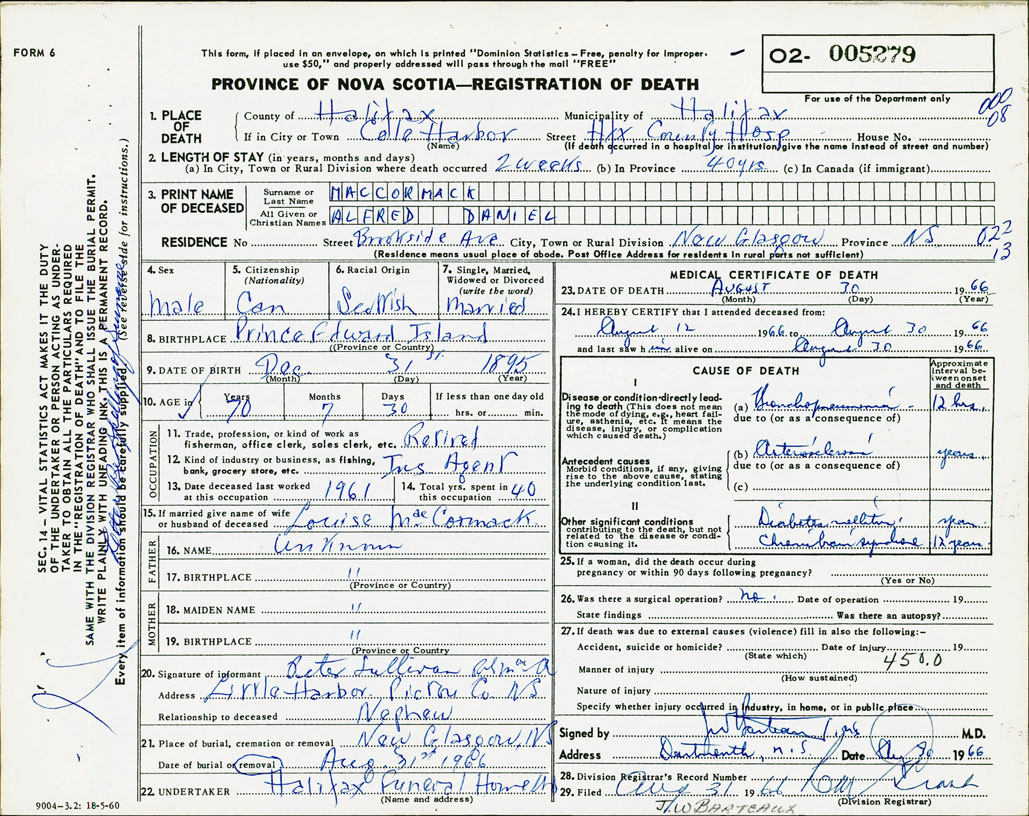 FORM 6
This form, if placed in an envelope, on which is printed "Dominion Statistics – Free, penalty for improper
use $50," and properly addressed will pass through the mail "FREE"
PROVINCE OF NOVA SCOTIA—REGISTRATION OF DEATH
02- 005279
For use of the Department only
000
08
1. PLACE OF DEATH
County of Halifax Municipality of Halifax
If in City or Town Cole Harbor Street Hfx County Hosp House No.
(Name) (If death occurred in a hospital or institution, give the name instead of street and number)
2. LENGTH OF STAY (in years, months and days)
(a) In City, Town or Rural Division where death occurred 2 weeks (b) In Province 40 yrs (c) In Canada (if immigrant)
3. PRINT NAME OF DECEASED
Surname or Last Name MACCORMACK
All Given or Christian Names ALFRED DANIEL
RESIDENCE No Street Brookside Ave City, Town or Rural Division New Glasgow Province NS 022
13
(Residence means usual place of abode. Post Office Address for residents in rural parts not sufficient)
4. Sex
Male
5. Citizenship
(Nationality)
Can
6. Racial Origin
Scottish
7. Single, Married, Widowed or Divorced
(write the word)
Married
8. BIRTHPLACE Prince Edward Island
(Province or Country)
9. DATE OF BIRTH Dec 31 st. 1895
(Month) (Day) (Year)
10. AGE in Years 70 Months 7 Days 30 If less than one day old
hrs. or min.
OCCUPATION
11. Trade, profession, or kind of work as
fisherman, office clerk, sales clerk, etc. Retired
12. Kind of industry or business, as fishing,
bank, grocery store, etc. Ins Agent
13. Date deceased last worked
at this occupation 1961
14. Total yrs. spent in
this occupation 40
15. If married give name of wife
or husband of deceased Louise MacCormack
FATHER
16. NAME Unknown
17. BIRTHPLACE "
(Province or Country)
MOTHER
18. MAIDEN NAME "
19. BIRTHPLACE "
(Province or Country)
20. Signature of informant Peter Sullivan
Address Little Harbor Pictou Co NS
Relationship to deceased Nephew
21. Place of burial, cremation or removal New Glasgow, NS
Date of burial or removal Aug. 31st 1966
22. UNDERTAKER Halifax Funeral Home
(Name and address)
9004-3.2: 18-5-60
MEDICAL CERTIFICATE OF DEATH
23. DATE OF DEATH August 30 1966
(Month) (Day) (Year)
24. I HEREBY CERTIFY that I attended deceased from:
August 12 1966 to August 30 1966
and last saw him alive on August 30 1966
CAUSE OF DEATH
Approximate interval between onset and death
I
Disease or condition directly leading to death (This does not mean the mode of dying, e.g., heart failure, asthenia, etc. It means the disease, injury, or complication which caused death.)
(a) Bronchopneumonia 12 hrs.
due to (or as a consequence of)
Antecedent causes
Morbid conditions, if any, giving rise to the above cause, stating the underlying condition last.
(b) Arteriosclerosis years
due to (or as a consequence of)
(c)
II
Other significant conditions contributing to the death, but not related to the disease or condition causing it.
Diabetes mellitus years
Chronic brain syndrome 12 years
25. If a woman, did the death occur during
pregnancy or within 90 days following pregnancy?
(Yes or No)
26. Was there a surgical operation? no. Date of operation 19
State findings Was there an autopsy?
27. If death was due to external causes (violence) fill in also the following:-
Accident, suicide or homicide? Date of injury 19
(State which)
450.0
Manner of injury
(How sustained)
Nature of injury
Specify whether injury occurred in Industry, in home, or in public place
Signed by M.D.
Address Dartmouth, N.S. Date Aug 30 1966
28. Division Registrar's Record Number
29. Filed Aug 31 1966
(Division Registrar)
J.W BARTEAUX
SEC. 14 – VITAL STATISTICS ACT MAKES IT THE DUTY
OF THE UNDERTAKER OR PERSON ACTING AS UNDER-
TAKER TO OBTAIN ALL THE PARTICULARS REQUIRED
IN THE "REGISTRATION OF DEATH" AND TO FILE THE
SAME WITH THE DIVISION REGISTRAR WHO SHALL ISSUE THE BURIAL PERMIT.
WRITE PLAINLY WITH UNFADING INK, THIS IS A PERMANENT RECORD.
Every item of information should be carefully supplied. (See reverse side for instructions.)